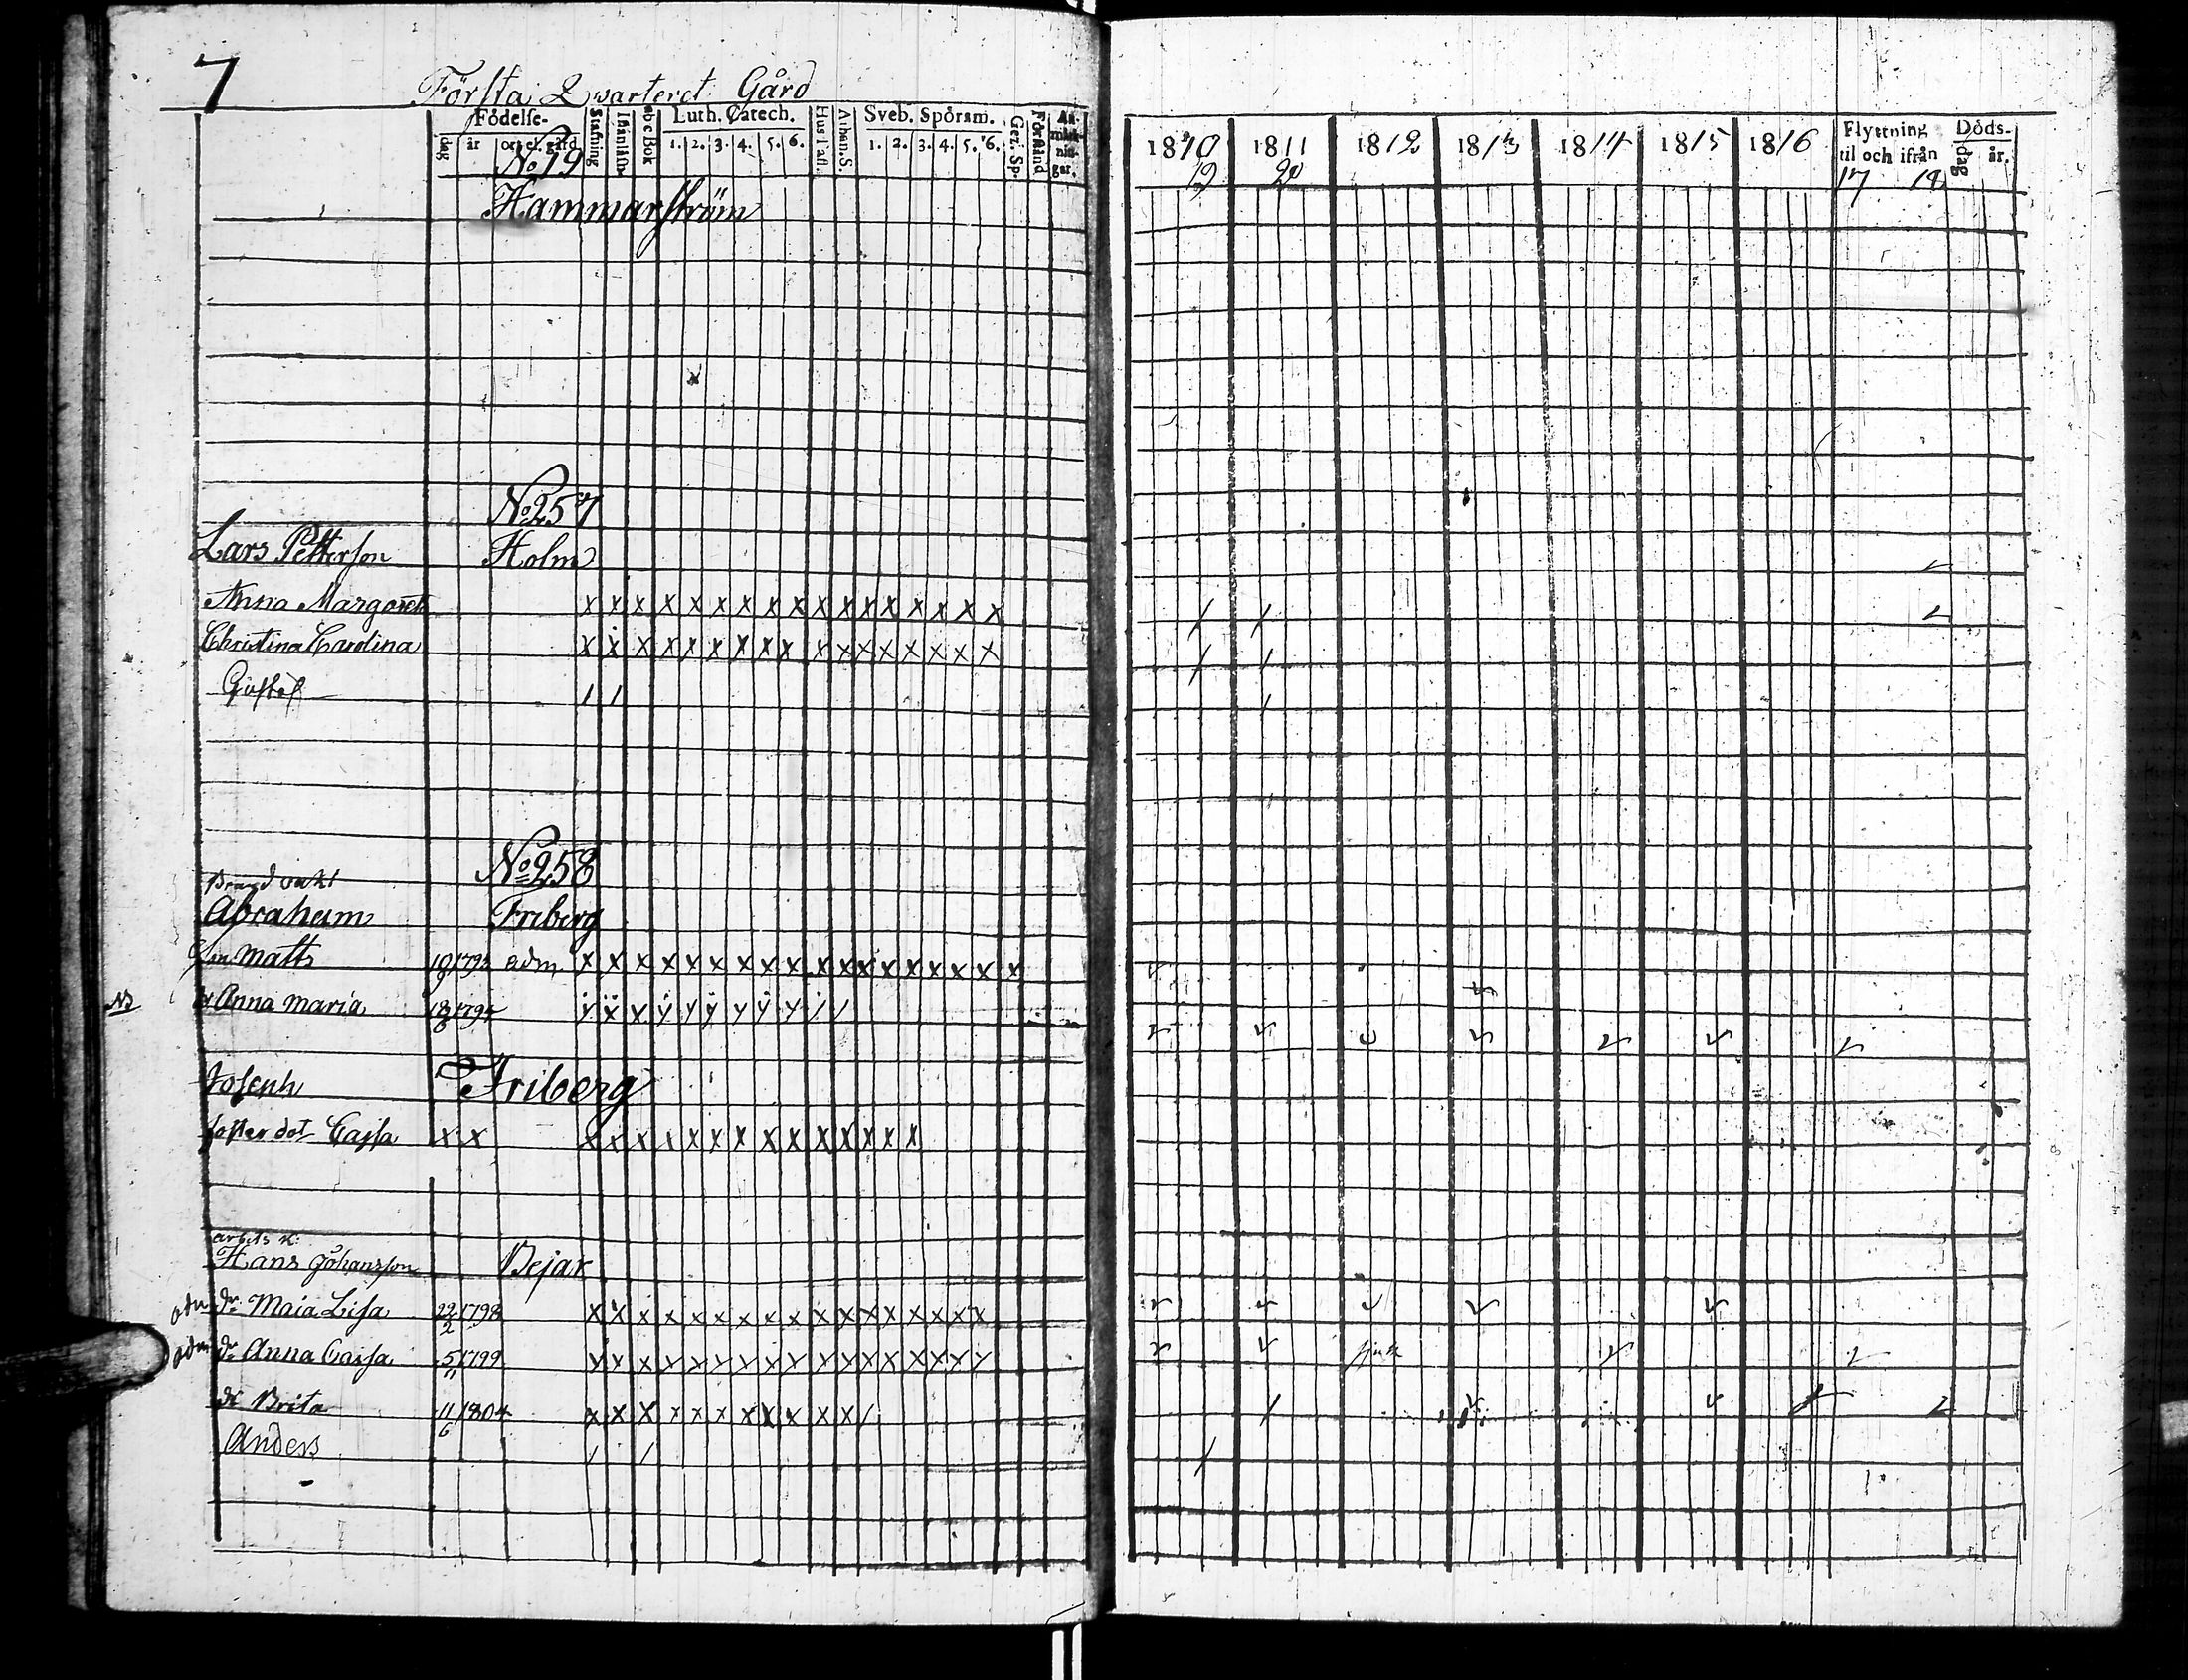 7
Första Qwarteret Gård
Födelse-
dag år ort el. gård
Stafning
Innanläsn.
abc Bok
Luth. Catech.
1. 2. 3. 4. 5. 6.
Hus Tafl.
Athan. S.
Sveb. Spörsm.
1. 2. 3. 4. 5. 6.
Gezl. Sp.
Förstånd
An-
märk-
nin-
gar.
1810 1811 1812 1813 1814 1815 1816
19 20
Flyttning
til och ifrån
17 18
Döds-
dag år.
No 19
Hammarström
No 257
Lars Petterson Holm
Anna Margaret x x x x x x x x x x x x x x x x x
Christina Carolina x x x x x x x x x x x x x x x x x
Gustaf 1 1
No 258
Brandvakt
Abraham Friberg
Matts adm x x x x x x x x x x x x x x x x x x
NB
Anna maria
Joseph Friberg
foster dot Cajsa x x x x x x x x x x x x x x x x
arbets k.
Hans Johansson Bejar
adm dr Maia Lisa 22/2 1798 x x x x x x x x x x x x x x x x x
adm dr Anna Cajsa 5/11 1799 sjuk
dr Brita 11/6 1804
Anders